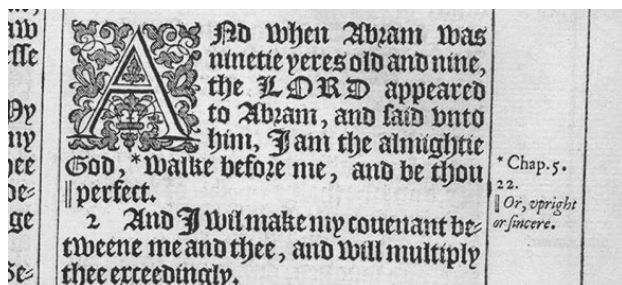 aw
esse
My
my
hee
de=
ge
Se=
AND when Abram was
ninetie yeres old and nine,
the LORD appeared
to Abram, and said vnto
him, I am the almightie
God, *walke before me, and be thou
‖ perfect.
2 And I wil make my couenant be=
tweene me and thee, and will multiply
thee exceedingly.
* Chap. 5.
22.
‖ Or, vpright
or sincere.